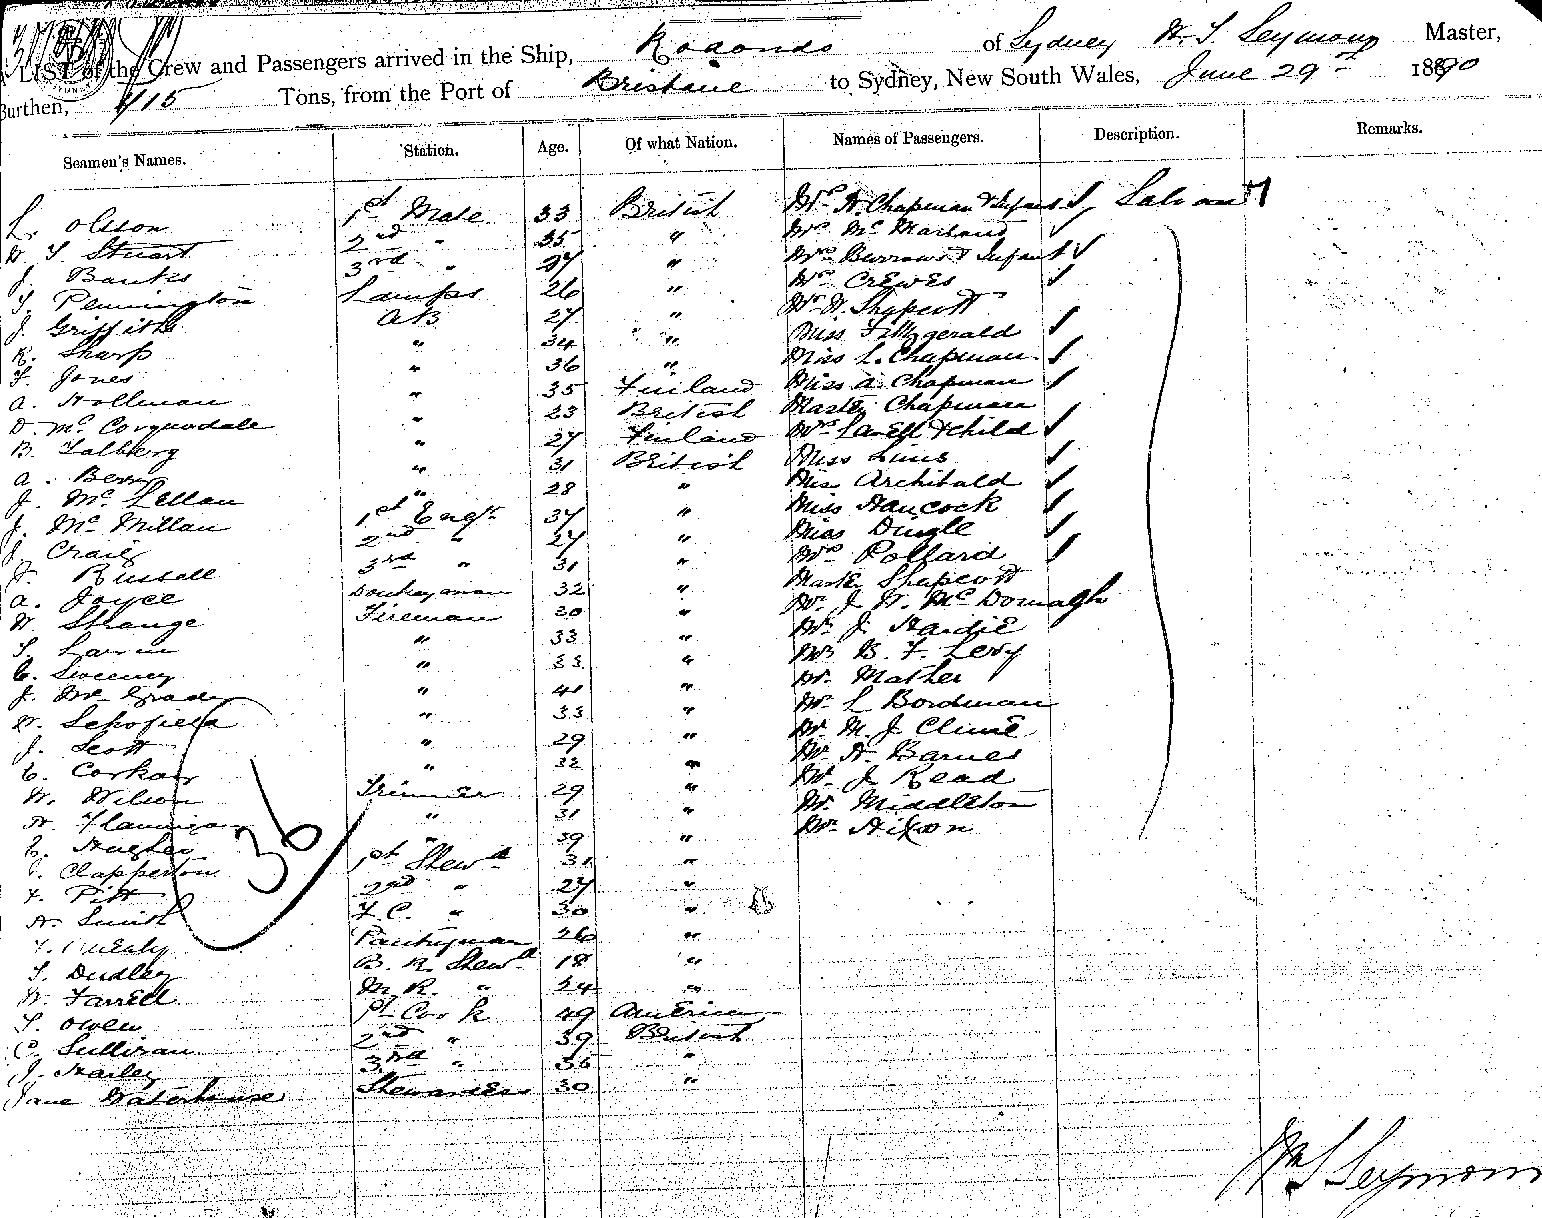 LIST of the Crew and Passengers arrived in the Ship, Rodondo of Sydney W. S. Seymour Master,
Burthen, 715 Tons, from the Port of Brisbane to Sydney, New South Wales, June 29th 1890
Seamen's Names. Station. Age. Of what Nation. Names of Passengers. Description. Remarks.
L. Olsson 1st Mate 33 British Mrs H. Chapman & Infant Saloon
W. T. Stuart 2nd " 35 " Mrs
J. Banks 3rd " 27 " Mrs Burrows & Infant
T. Plumington Lamps 26 " Mrs Crewes
J. Griffiths AB 27 " Mrs W. Shapcott
R. Sharp " 34 " Miss Fitzgerald
T. Jones " 36 " Miss L. Chapman
A. Hollman " 35 Finland Miss A. Chapman
D. McCorquodale " 23 British Master Chapman
B. Talberg " 27 Finland Mrs & child
A. Berry " 31 British Miss
J. McLellan " 28 " Miss Archibald
J. McMillan 1st Engr 37 " Miss Hancock
J. Craig 2nd " 27 " Miss Dingle
J. Russell 3rd " 31 " Mrs Pollard
A. Joyce Donkeyman 32 " Master Shapcott
W. Strange Fireman 30 " Mr J. W. McDonagh
T. " 33 " Mr J. Hardie
C. Sweeney " 33 " Mr B. F. Levy
J. McGrady " 41 " Mr Mather
W. Schofield " 33 " Mr L Bordman
J. Scott " 29 " Mr M. J. Clune
C. Corkan " 32 " Mr H. Barnes
W. Wilson Trimmer 29 " Mr J. Read
H. Flannigan " 31 " Mr Middleton
C. Hughes " 39 " Mr Hixon
Clapperton 1st Stewd 31 "
F. Pitt 2nd " 27 "
H. Smith F. C. " 30 "
T. Pantryman 26 "
T. Dudley B. R. Stewd 18 "
W. Farrell M. R. " 24 "
T. Owen 1st Cook 49 American
C. Sullivan 2nd " 39 British
J. Hailey 3rd " 36 "
Jane Waterhouse Stewardess 30 "
36
Wm S Seymour